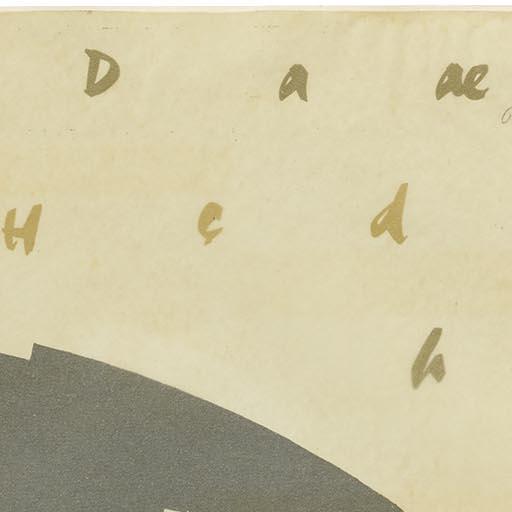 D a ae
H ç d
h